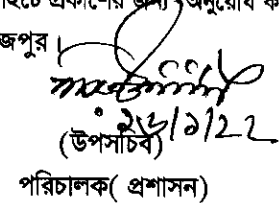 প্রকাশের জন্য অনুরোধ ক
জপুর।
২৬/১/২২
(উপসচিব)
পরিচালক( প্রশাসন)